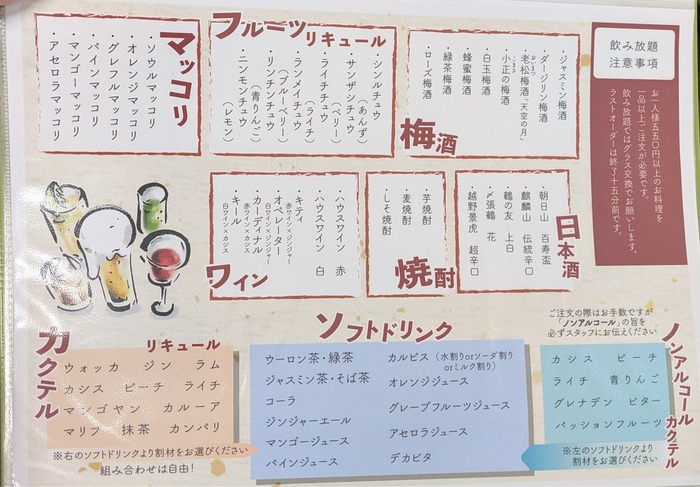 飲み放題
注意事項
お一人様五五〇円以上のお料理を
一品以上ご注文が必要です。
飲み放題ではグラス交換でお願いします。
ラストオーダーは終了十五分前です。
梅酒
・ジャスミン梅酒
・ダージリン梅酒
・老松梅酒「天空の月」
・小正の梅酒
・白玉梅酒
・蜂蜜梅酒
・緑茶梅酒
・ローズ梅酒
フルーツリキュール
・シンルチュウ(あんず)
・サンザシチュウ(ベリー)
・ライチチュウ(ライチ)
・ランメイチュウ(ブルーベリー)
・リンチンチュウ(青りんご)
・ニンモンチュウ(レモン)
マッコリ
・ソウルマッコリ
・オレンジマッコリ
・グレフルマッコリ
・パインマッコリ
・マンゴーマッコリ
・アセロラマッコリ
日本酒
・朝日山 百寿盃
・麒麟山 伝統辛口
・鶴の友 上白
・〆張鶴 花
・越野景虎 超辛口
焼酎
・芋焼酎
・麦焼酎
・しそ焼酎
ワイン
・ハウスワイン 赤
・ハウスワイン 白
・キティ
赤ワイン×ジンジャー
・オペレーター
白ワイン×ジンジャー
・カーディナル
赤ワイン×カシス
・キール
白ワイン×カシス
カクテル
リキュール
ウォッカ ジン ラム
カシス ピーチ ライチ
マンゴヤン カルーア
マリブ 抹茶 カンパリ
※右のソフトドリンクより割材をお選びください
組み合わせは自由!
ソフトドリンク
ウーロン茶・緑茶
ジャスミン茶・そば茶
コーラ
ジンジャーエール
マンゴージュース
パインジュース
カルピス(水割りorソーダ割り
orミルク割り)
オレンジジュース
グレープフルーツジュース
アセロラジュース
デカビタ
ご注文の際はお手数ですが
「ノンアルコール」の旨を
必ずスタッフにお伝えください
ノンアルコールカクテル
カシス ピーチ
ライチ 青りんご
グレナデン ビター
パッションフルーツ
※左のソフトドリンクより
割材をお選びください